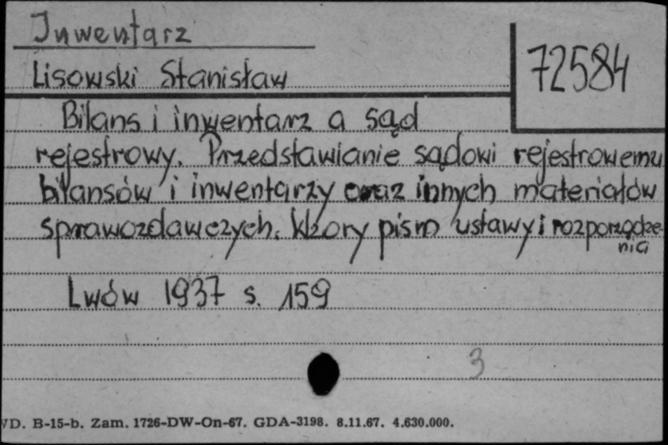 Inwentarz
72584
Lisowski Stanisław
Bilans i inwentarz a sąd
rejestrowy. Przedstawianie sądowi rejestrowemu
bilansów i inwentarzy oraz innych materiałów
sprawozdawczych. Wzory pism ustawy i rozporządze-
nia
Lwów 1937 s. 159
3
VD. B-15-b. Zam. 1726-DW-On-67. GDA-3198. 8.11.67. 4.630.000.